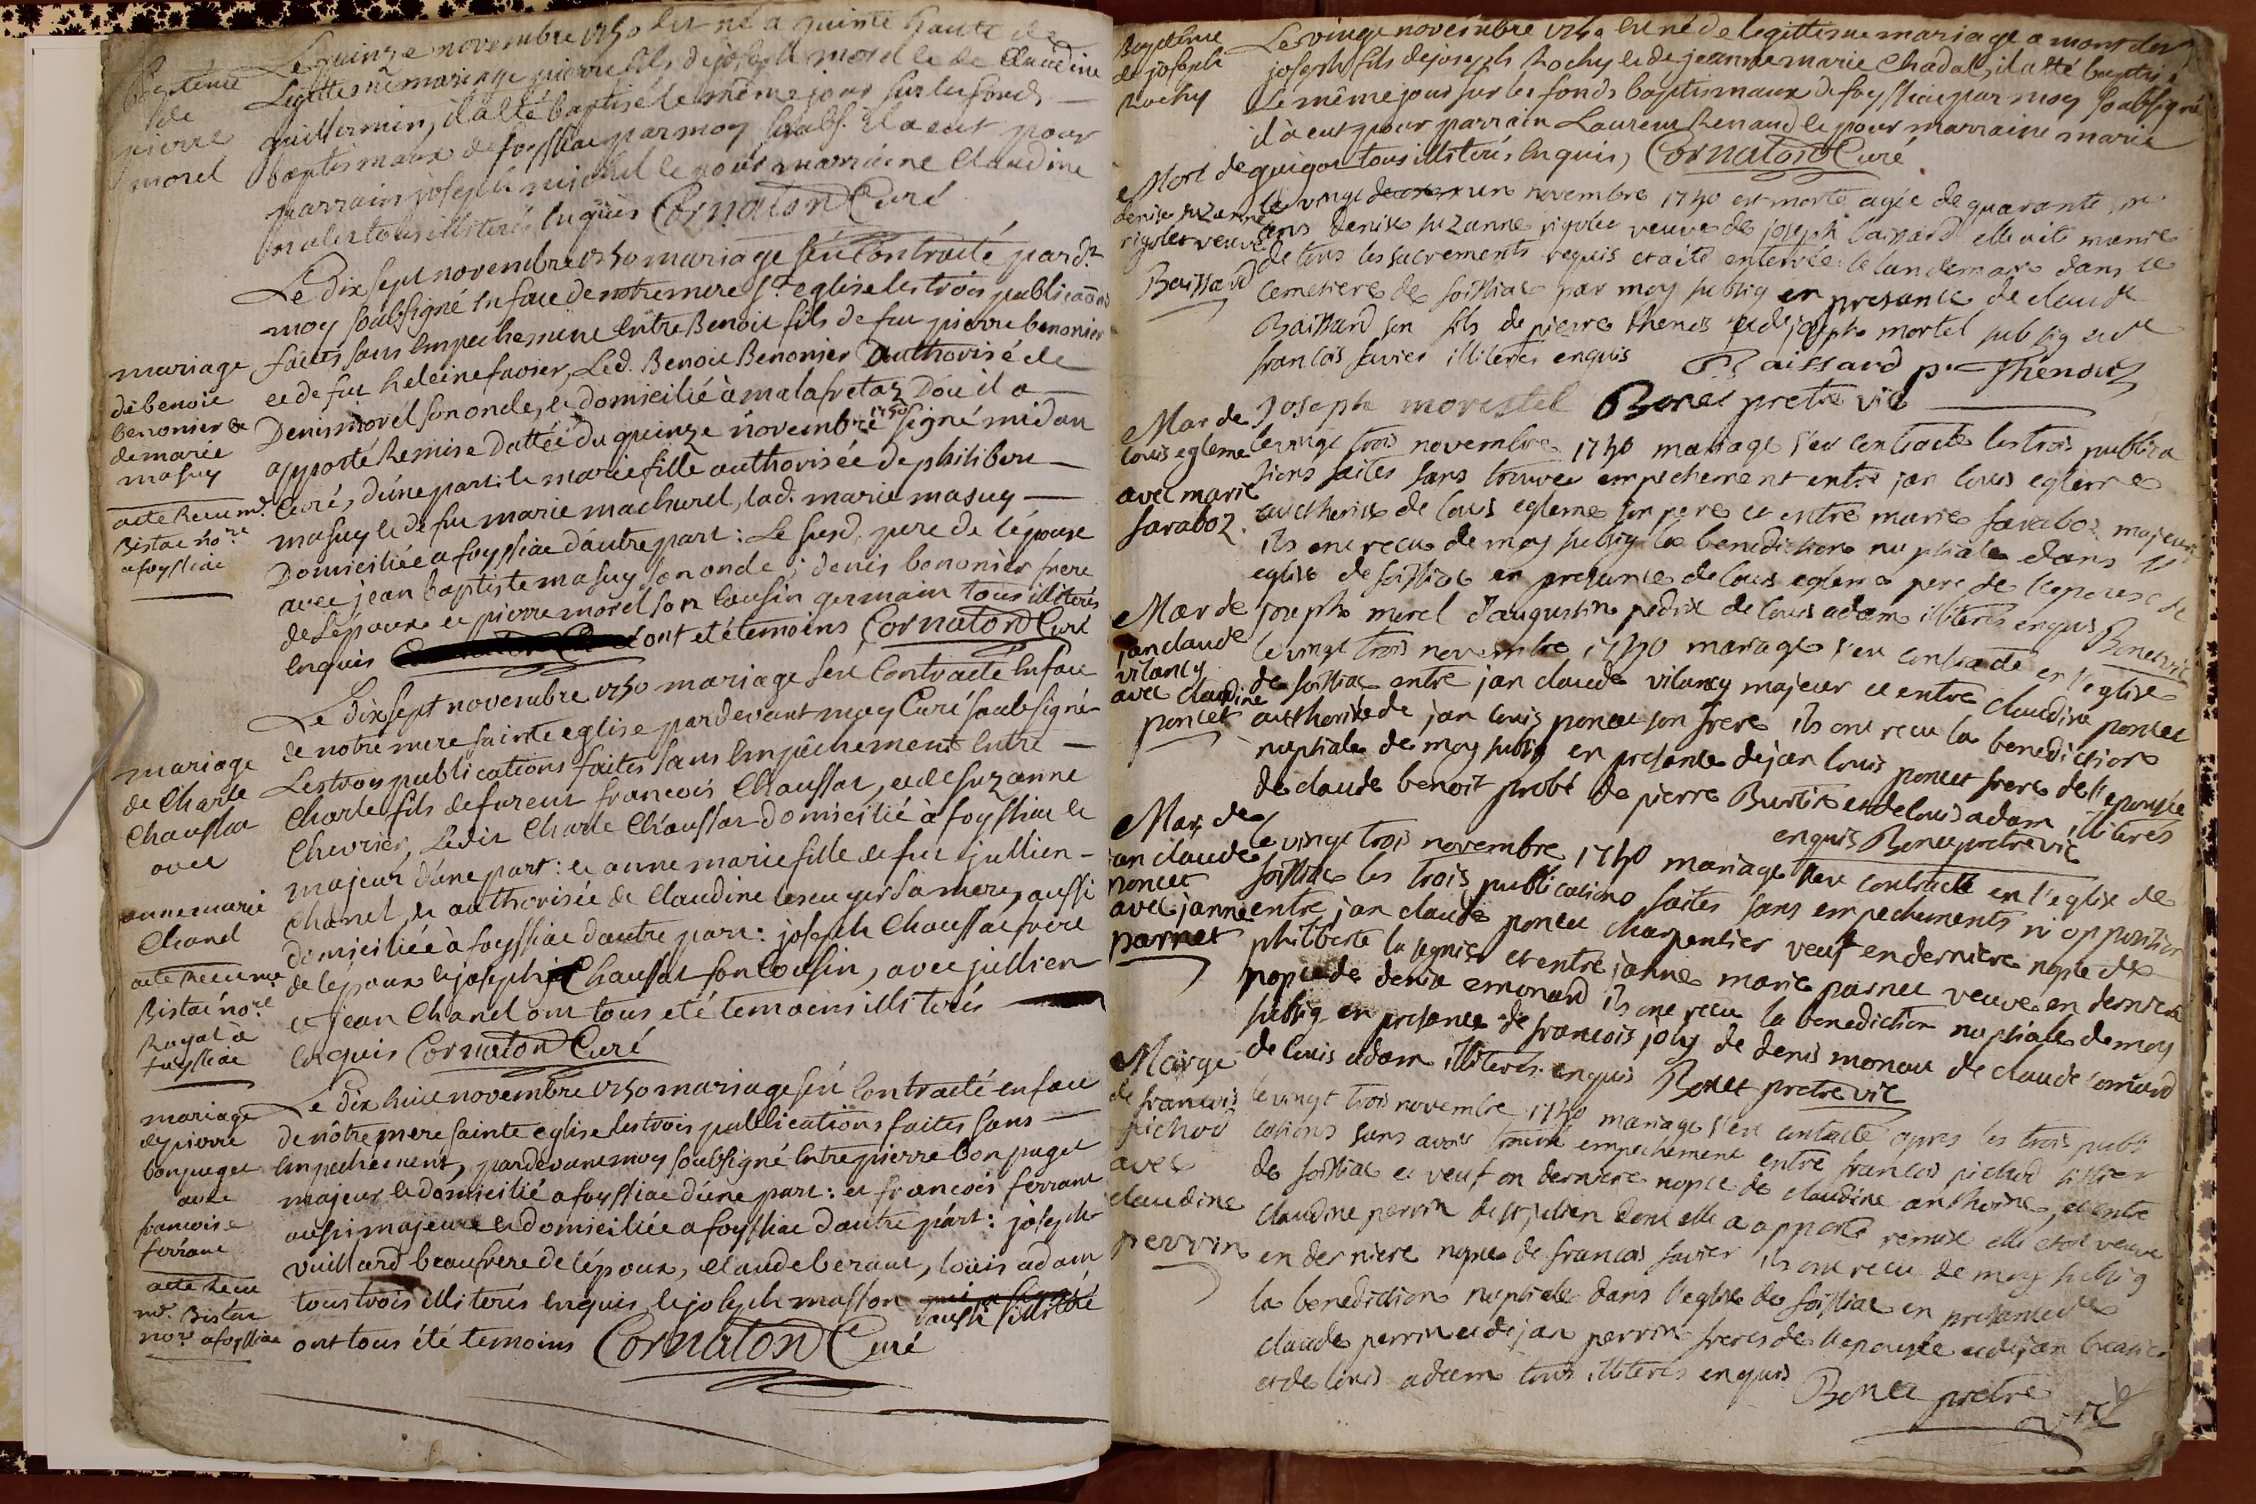 Baptême
de
pierre
morel
Le quinze novembre 1750 est né a quinte haute de
Legitesme mariage pierre fils de joseph morel et de Claudine
guillermin, il a été baptisé le même jour sur les fonds
baptismaux de foyssiac par moy soubs. il a eut pour
parrain joseph michel et pour marraine Claudine
tous illiterés enquis Cornaton Curé
mariage
de benoit
benonier &
de marie
masuy
acte Recu md.
Bistac nore.
a foyssiac
Le dix sept novembre 1750 mariage s'est Contracté pard.t
moy soubsigné en face de notre mere st. eglise les trois publicaōns
faites sans empechement entre Benoit fils de feu pierre benonier
et de feu heleine favier, Led. Benoit Benonier Authorisé de
Denis morel son oncle, et domicilié à malafretaz Dou il a
apporté Remise dattée du quinze novembre 1750 signé midan
Curé, d'une part: et marie fille authorisée de philibert
masuy et de feu marie machurel, lad. marie masuy
Domiciliée a foyssiac d'autre part: Le susd. pere de l'epouse
avec jean baptiste masuy son oncle; denis benonier frere
de l'epoux et pierre morel son Cousin germain tous illiterés
enquis ont eté temoins Cornaton Curé
mariage
de Charle
Chaussat
avec
anne marie
Chanel
acte Recu me
Bistac nore.
Royal à
foyssiac
Le dix sept novembre 1750 mariage s'est Contracté en face
de notre mere sainte eglise pardevant moy Curé soubsigné
Les trois publications faites sans empêchement entre
Charle fils de fureut francois Chaussat, et de suzanne
Chevrier, Ledit Charle Chaussat domicilié à foyssiac et
majeur d'une part: et anne marie fille de feu jullien
Chanel, et authorisée de Claudine lescuyer sa mere, aussi
domiciliée à foyssiac d'autre part: joseph Chaussat frere
de l'epoux et joseph Chaussat son Cousin, avec jullien
et jean Chanel ont tous eté temoins illiterés
enquis Cornaton Curé
mariage
de pierre
bonpuget
avec
francoise
ferrant
acte Recu
md. Bistac
nore. a foyssiac
Le dix huit novembre 1750 mariage s'est Contracté en face
de nôtre mere sainte eglise les trois publications faites sans
Empechement, pardevant moy soubsigné entre pierre bonpuget
majeur et domicilié a foyssiac d'une part: et francois ferrant
aussi majeure et domiciliée a foyssiac d'autre part: joseph
vuillard beaufrere de l'epoux, claude beraut, loüis adam
tous trois illiterés enquis, et joseph masson aussi illitéré
ont tous été temoins Cornaton Curé
Baptême
de joseph
Rochy
Le vingt novembre 1750 est né de legittisme mariage a mont
joseph fils de joseph Rochy et de jeanne marie Chadal, il a été baptisé
Le même jour sur les fonds baptismaux de foyssiac par moy soubsigné
il à eut pour parrain Laurent Renaud et pour marraine marie
guigou tous illiterés enquis, Cornaton Curé
Mort de
denise suzanne
rigolet veuve
Baissard
le vingt un novembre 1750 est morte agée de quarante
ans denise suzanne rigolet veuve de joseph baissard elle a été munie
de tous les sacrements requis et a été enterrée le landemain dans le
cemetiere de foissiac par moy subsig en presance de claude
Baissard son fils de pierre thenos et de joseph mortel subsig et de
francois favier illiteres enquis Baissard p. Thenoz
Joseph morestel Bonet pretre vic
Mar de
louis egleme
avec marie
faraboz.
le vingt trois novembre 1750 mariage s'est contracté les trois publica
tions faites sans trouver empechement entre jan louis egleme
aucthorisé de louis egleme son pere et entre marie faraboz majeure
ils ont recu de moy subsig la benediction nuptiale dans l'
eglise de foissiac en presance de louis egleme pere de l'epoux de
joseph morel d'augustin pedrix de louis adam illiteres enquis Bonet vic
Mar de
jan claude
vilancy
avec claudine
poncet
le vingt trois novembre 1750 mariage s'est contracté en l'eglise
de foissiac entre jan claude vilancy majeur et entre claudine poncet
aucthorisée de jan louis poncet son frere ils ont recu la benediction
nuptiale de moy subsig en presance de jan louis poncet frere de l'epousée
de claude benoit probé de pierre Burtin et de louis adam illiteres
enquis Bonet pretre vic
Mar de
jan claude
poncet
avec janne
parnet
le vingt trois novembre 1750 mariage s'est contracté en l'eglise de
foissiac les trois publications faites sans empechements ni opposition
entre jan claude poncet charpentier veuf en derniere nopce de
philiberte la ugnier et entre janne marie parnet veuve en derniere
nopce de denis emonard ils ont recu la benediction nuptiale de moy
subsig en presance de francois joly de denis monau de claude
de louis adam illiteres enquis Bonet pretre vic
Marge
de francois
pichod
avec
claudine
pervin
le vingt trois novembre 1750 mariage s'est contracté apres les trois publi
cations sans avoir trouvé empechement entre francois pichod
de foissiac et veuf en derniere nopce de claudine anthoine, et entre
claudine perrin de st julien dont elle a apporté remise elle etoit veuve
en derniere nopce de francois favier ils ont recu de moy subsig
la benediction nuptiale dans l'eglise de foissiac en presance de
claude perrin et de jan perrin freres de l'epousée et de jan
et de louis adam tous illiteres enquis Bonet pretre
vic